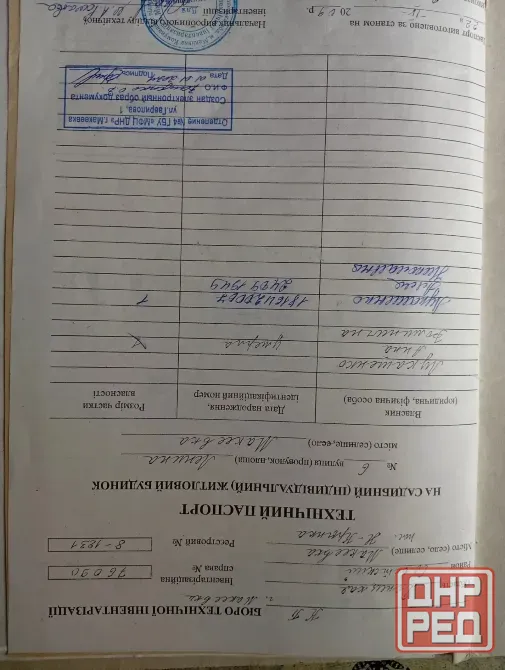 БЮРО ТЕХНІЧНОЇ ІНВЕНТАРИЗАЦІЇ
г. Макеевка
Інвентаризаційна
справа № 76090
Район
місто (село, селище) Макеевка
Реєстровий № 8-1231
ТЕХНІЧНИЙ ПАСПОРТ
НА САДИБНИЙ (ІНДИВІДУАЛЬНИЙ) ЖИТЛОВИЙ БУДИНОК
№ 6 вулиця (провулок, площа) Ленина
місто (селище, село) Макеевка
Власник
(юридична, фізична особа)
Дата народження,
ідентифікаційний номер
Розмір частки
власності
Лукашенко
Анна
Фоминична
умерла
Лукашенко
1
Николаевна
2409 1949
Отделение №4 ГБУ «МФЦ ДНР» г.Макеевка
ул.Гаврилова, 1
Создан электронный образ документа
Ф.И.О.
Дата
Подпись
Паспорт виготовлено за станом на
20 09 р.
Начальник виробничого відділу технічної
інвентаризації
ДНР
РЕД